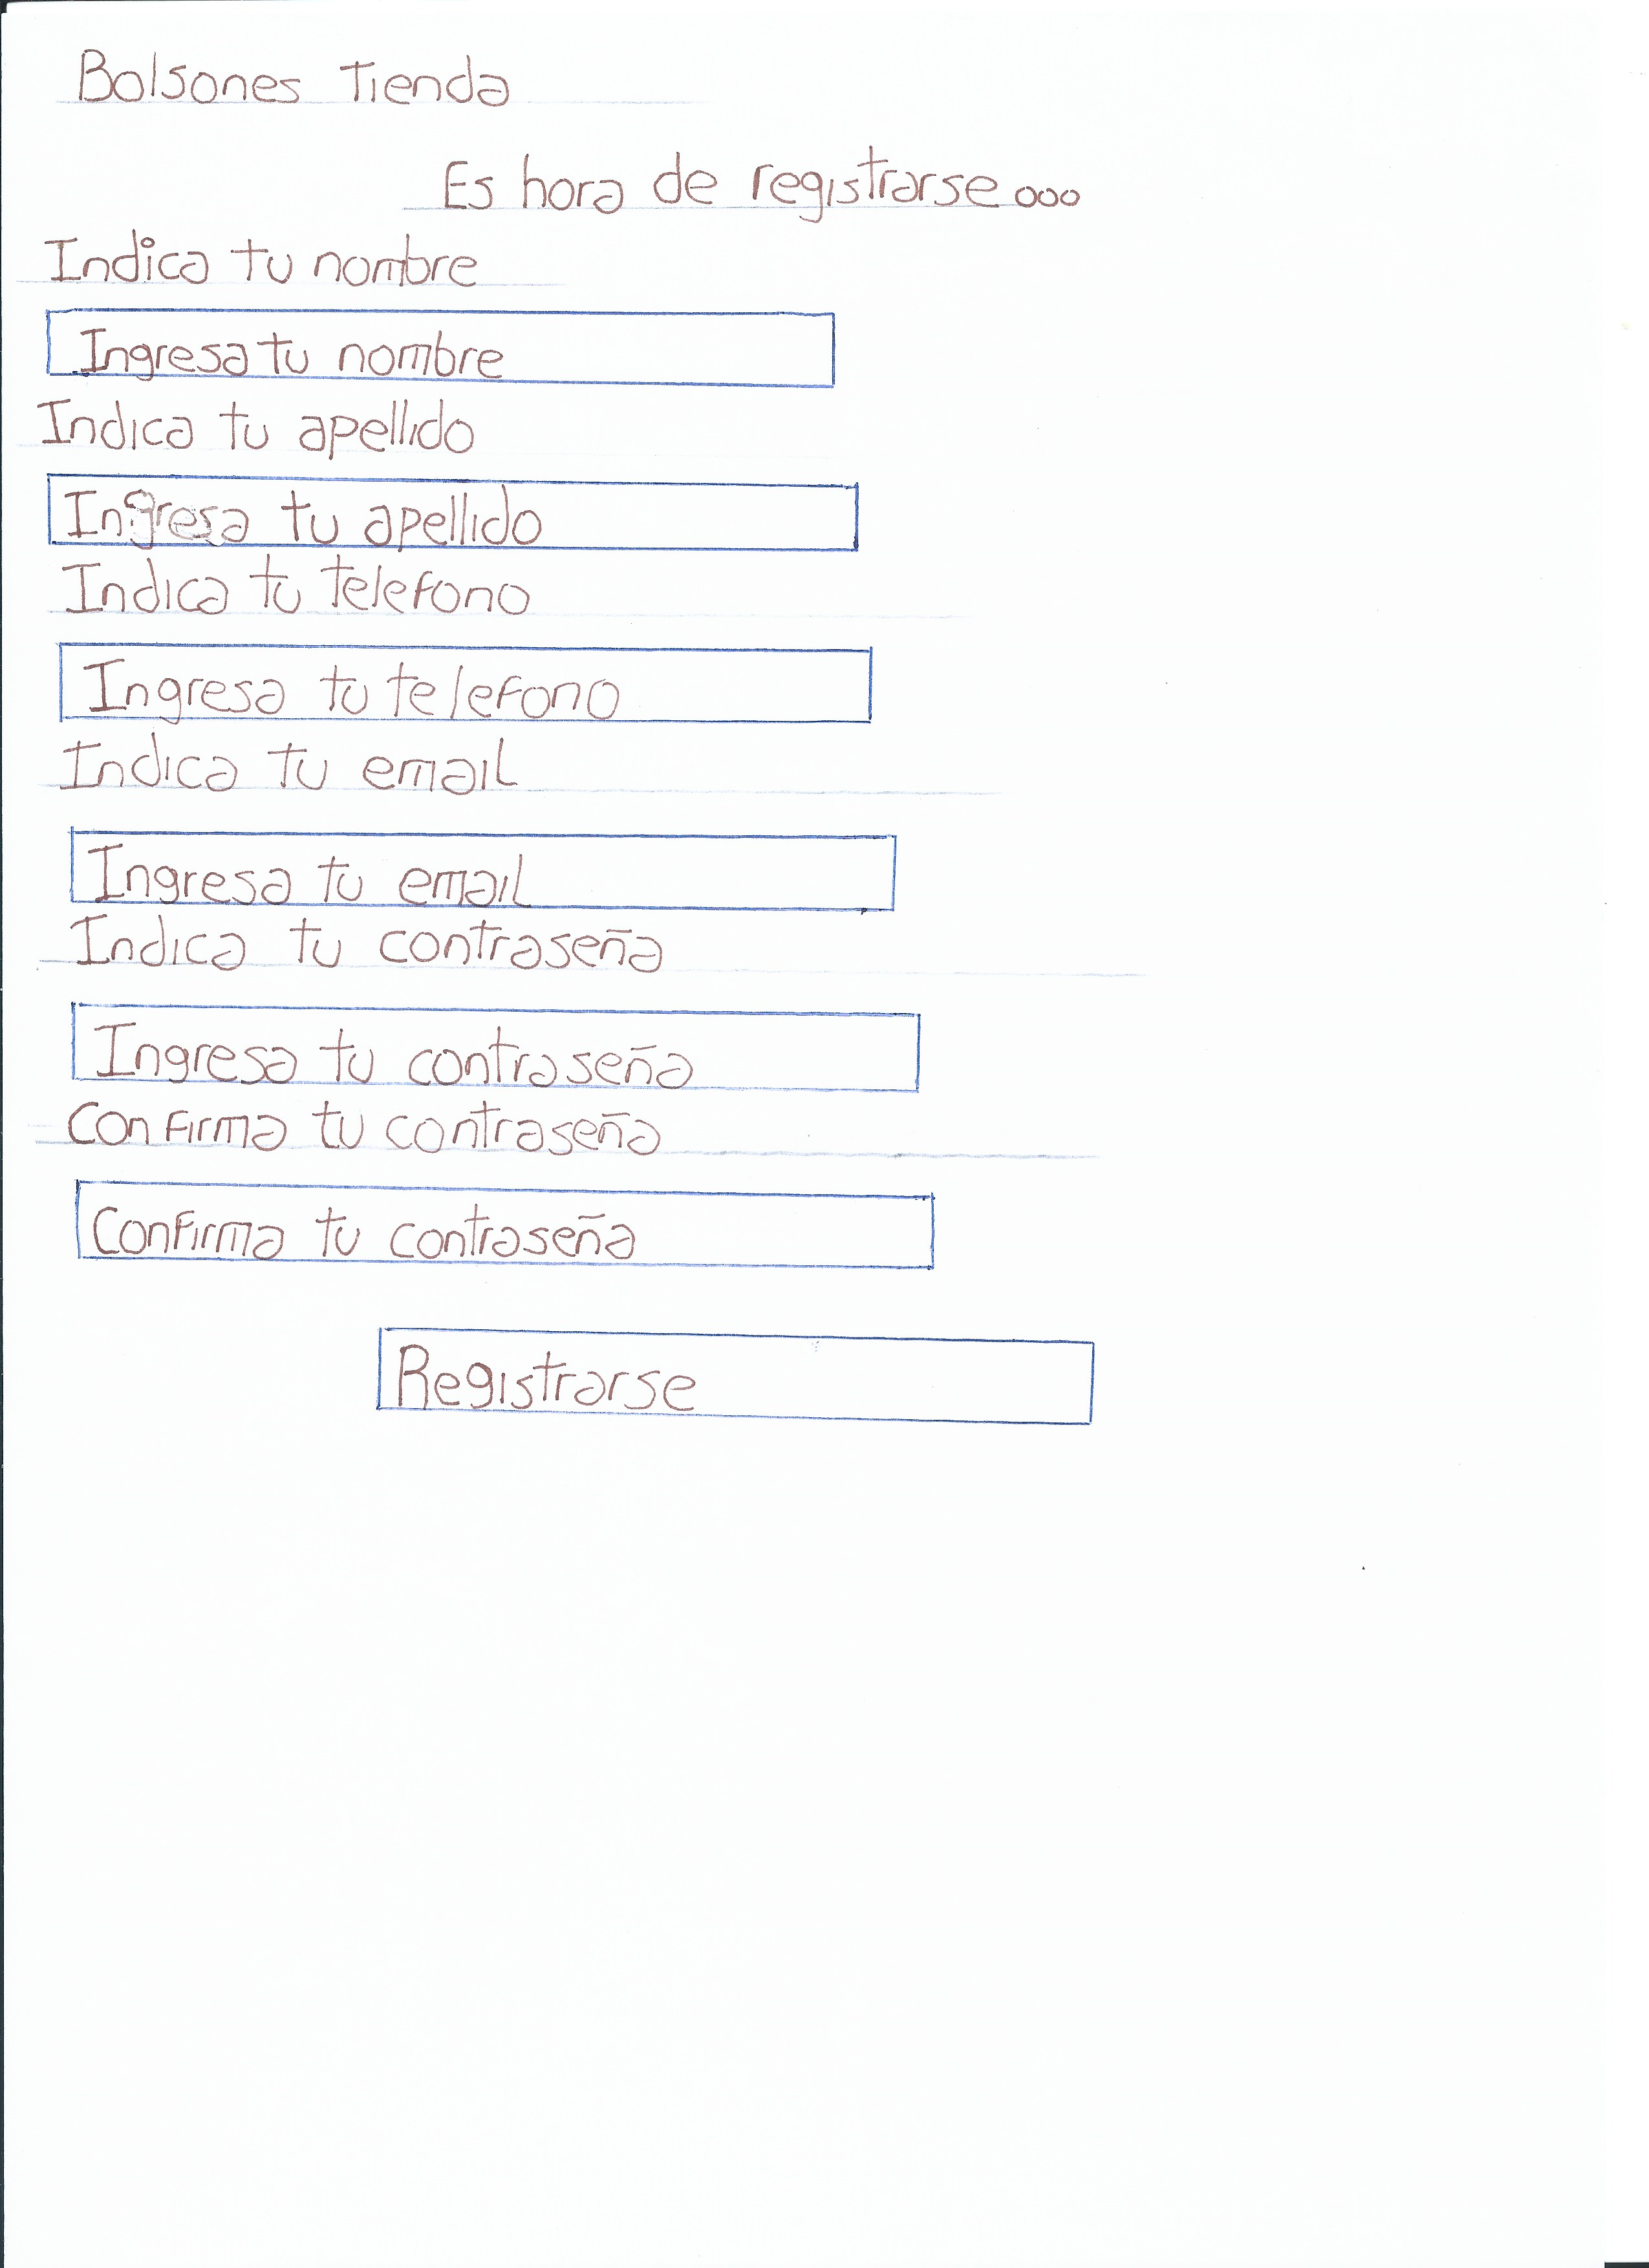 Bolsones Tienda
Es hora de registrarse...
Indica tu nombre
Ingresa tu nombre
Indica tu apellido
Ingresa tu apellido
Indica tu telefono
Ingresa tu telefono
Indica tu email
Ingresa tu email
Indica tu contraseña
Ingresa tu contraseña
Confirma tu contraseña
Confirma tu contraseña
Registrarse